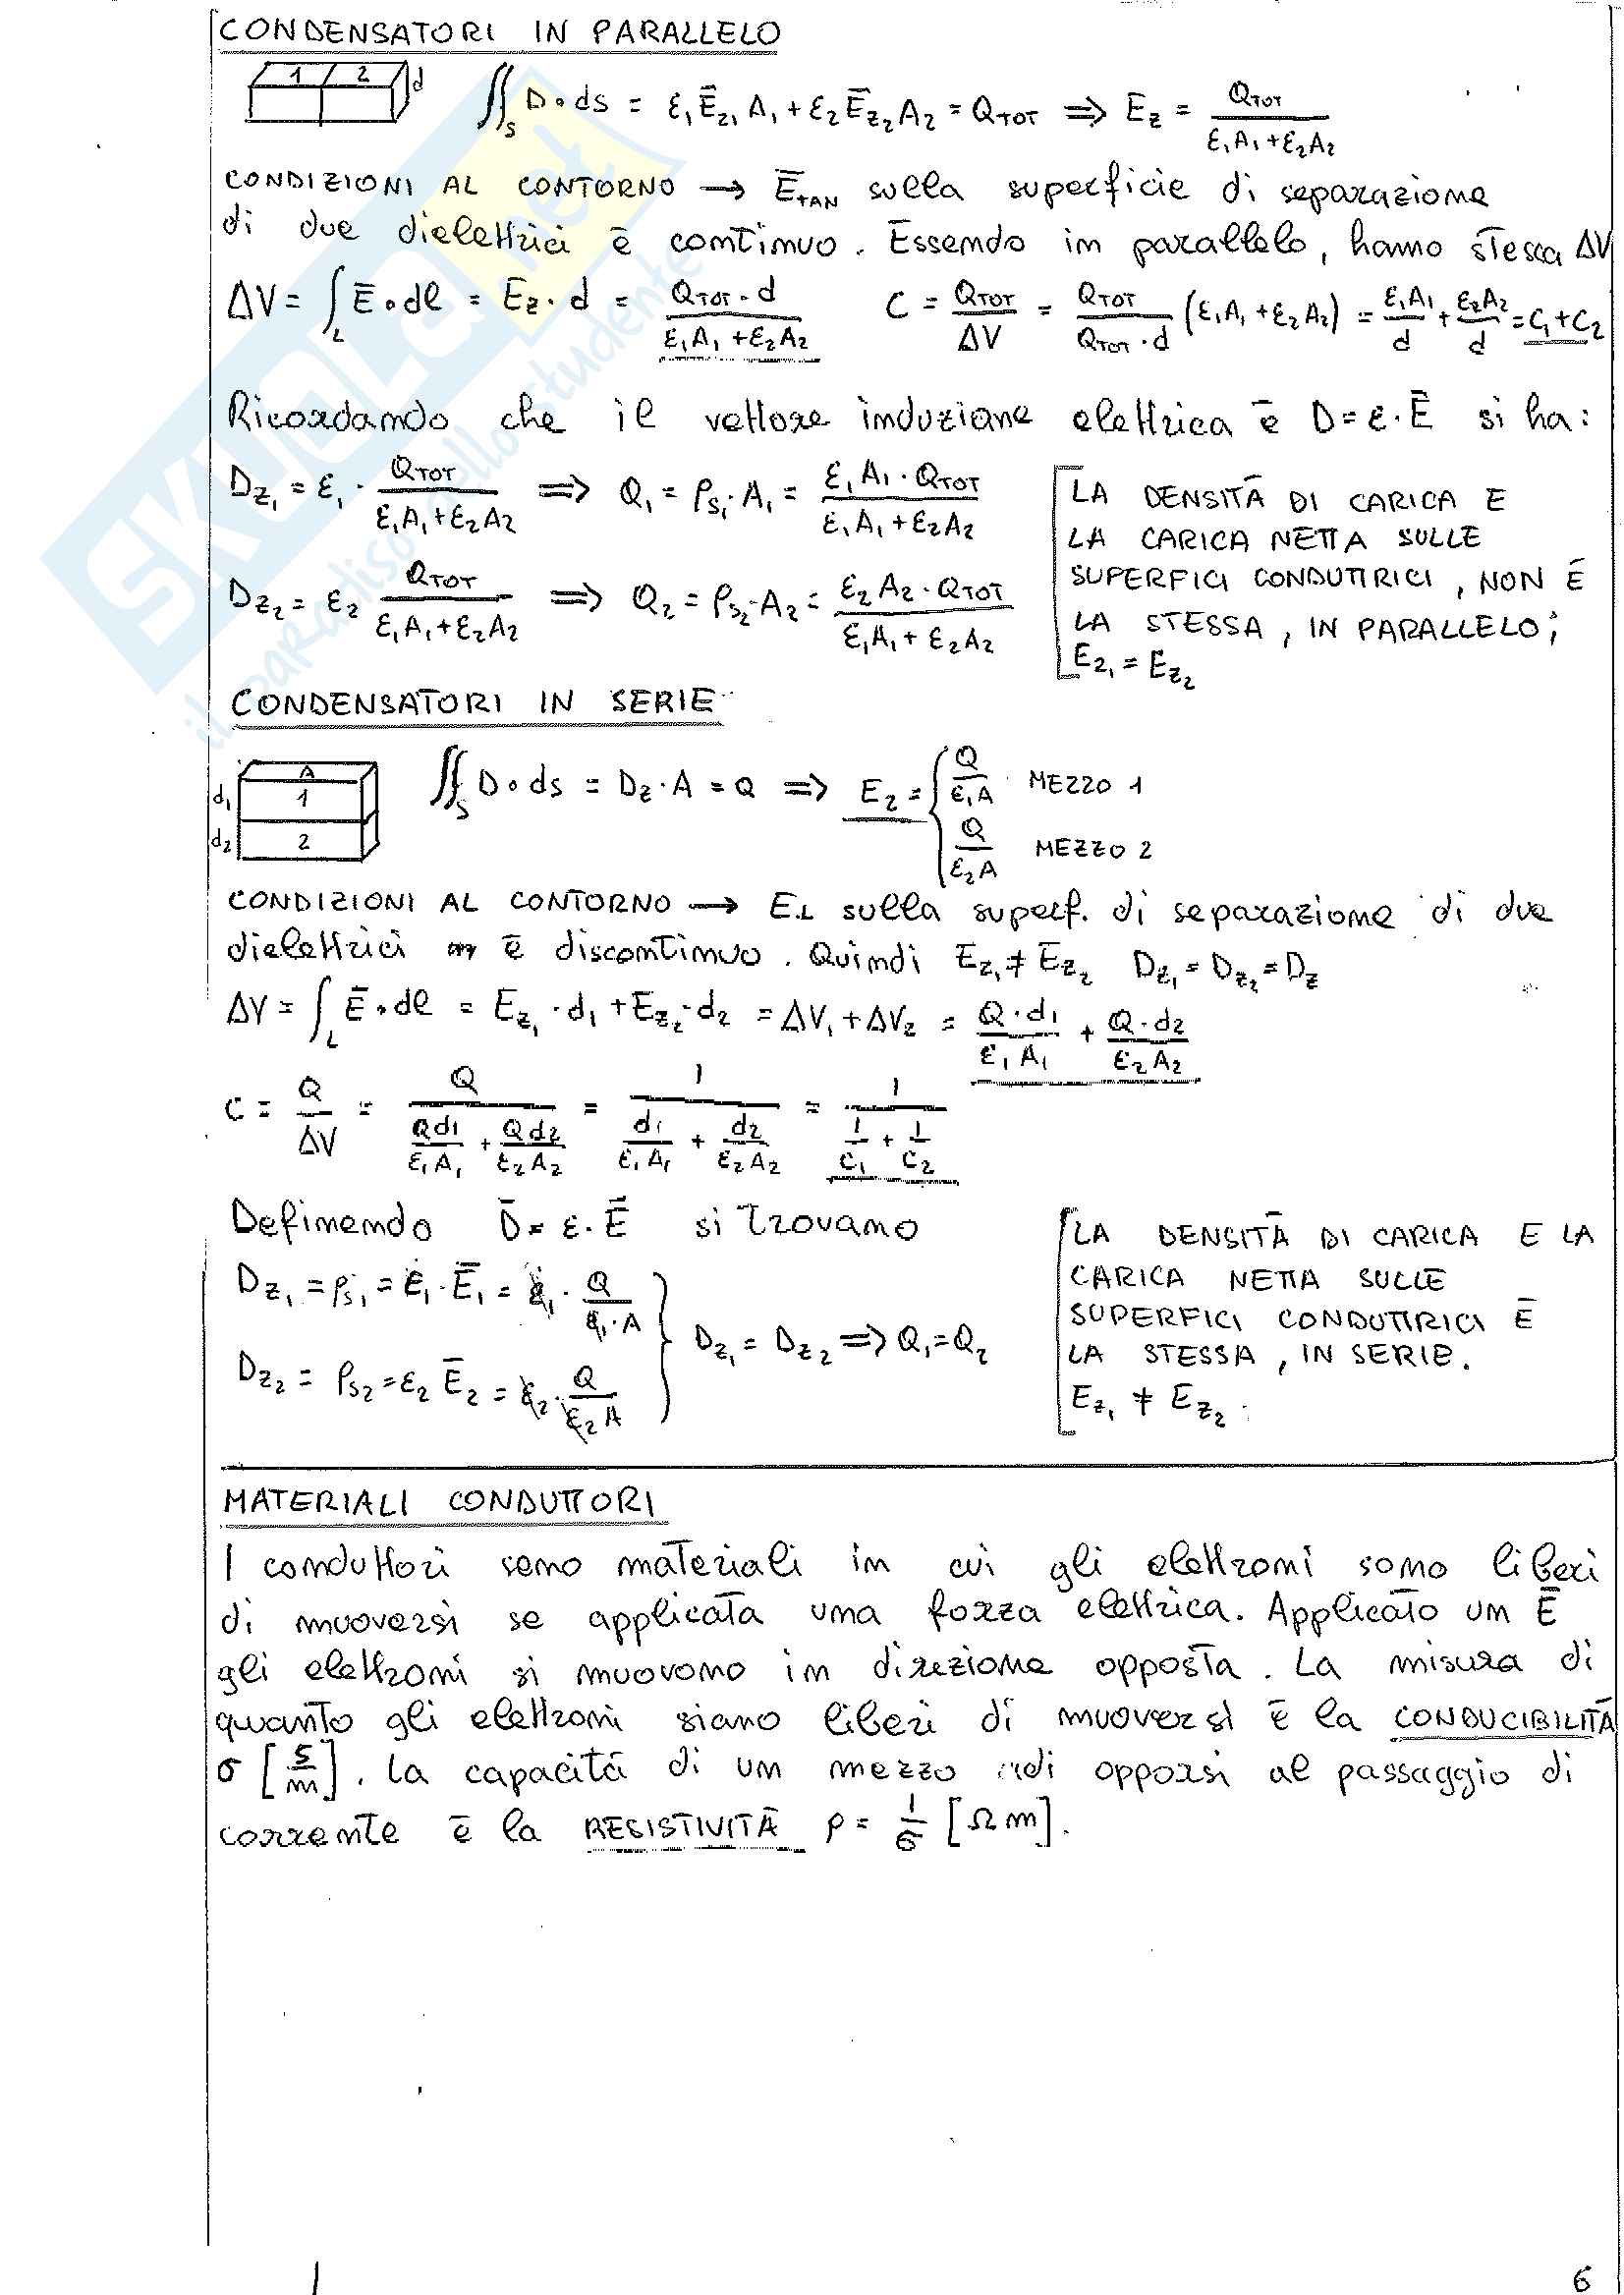 CONDENSATORI IN PARALLELO
1 2 d
∬_S D∘ds = ε₁Ē_z₁A₁ + ε₂Ē_z₂A₂ = Q_TOT ⇒ E_z = Q_TOT / (ε₁A₁+ε₂A₂)
CONDIZIONI AL CONTORNO → Ē_TAN sulla superficie di separazione
di due dielettrici è continuo. Essendo in parallelo, hanno stessa ΔV
ΔV = ∫_L Ē∘dl = E_z·d = Q_TOT·d / (ε₁A₁+ε₂A₂) C = Q_TOT/ΔV = Q_TOT/(Q_TOT·d) (ε₁A₁+ε₂A₂) = ε₁A₁/d + ε₂A₂/d = C₁+C₂
Ricordando che il vettore induzione elettrica è D=ε·Ē si ha:
D_z₁ = ε₁· Q_TOT/(ε₁A₁+ε₂A₂) ⇒ Q₁ = ρ_s₁·A₁ = ε₁A₁·Q_TOT/(ε₁A₁+ε₂A₂)
D_z₂ = ε₂ Q_TOT/(ε₁A₁+ε₂A₂) ⇒ Q₂ = ρ_s₂·A₂ = ε₂A₂·Q_TOT/(ε₁A₁+ε₂A₂)
LA DENSITÀ DI CARICA E
LA CARICA NETTA SULLE
SUPERFICI CONDUTTRICI, NON È
LA STESSA, IN PARALLELO;
E_z₁ = E_z₂
CONDENSATORI IN SERIE
A
d₁ 1
d₂ 2
∬_S D∘ds = D_z·A = Q ⇒ E_z = { Q/(ε₁A) MEZZO 1
Q/(ε₂A) MEZZO 2
CONDIZIONI AL CONTORNO → E⊥ sulla superf. di separazione di due
dielettrici è discontinuo. Quindi E_z₁ ≠ Ē_z₂ D_z₁ = D_z₂ = D_z
ΔV = ∫_L Ē∘dl = E_z₁·d₁ + E_z₂·d₂ = ΔV₁+ΔV₂ = Q·d₁/(ε₁A₁) + Q·d₂/(ε₂A₂)
C = Q/ΔV = Q/(Qd₁/(ε₁A₁) + Qd₂/(ε₂A₂)) = 1/(d₁/(ε₁A₁) + d₂/(ε₂A₂)) = 1/(1/C₁ + 1/C₂)
Definendo D̄ = ε·Ē si trovano
D_z₁ = ρ_s₁ = ε₁·Ē₁ = ε₁· Q/(ε₁·A)
D_z₂ = ρ_s₂ = ε₂Ē₂ = ε₂· Q/(ε₂A)
D_z₁ = D_z₂ ⇒ Q₁=Q₂
LA DENSITÀ DI CARICA E LA
CARICA NETTA SULLE
SUPERFICI CONDUTTRICI È
LA STESSA, IN SERIE.
E_z₁ ≠ E_z₂.
MATERIALI CONDUTTORI
I conduttori sono materiali in cui gli elettroni sono liberi
di muoversi se applicata una forza elettrica. Applicato un Ē
gli elettroni si muovono in direzione opposta. La misura di
quanto gli elettroni siano liberi di muoversi è la CONDUCIBILITÀ
σ [S/m]. La capacità di un mezzo di opporsi al passaggio di
corrente è la RESISTIVITÀ ρ = 1/σ [Ωm].
6
SKUOLA.net
il paradiso dello studente